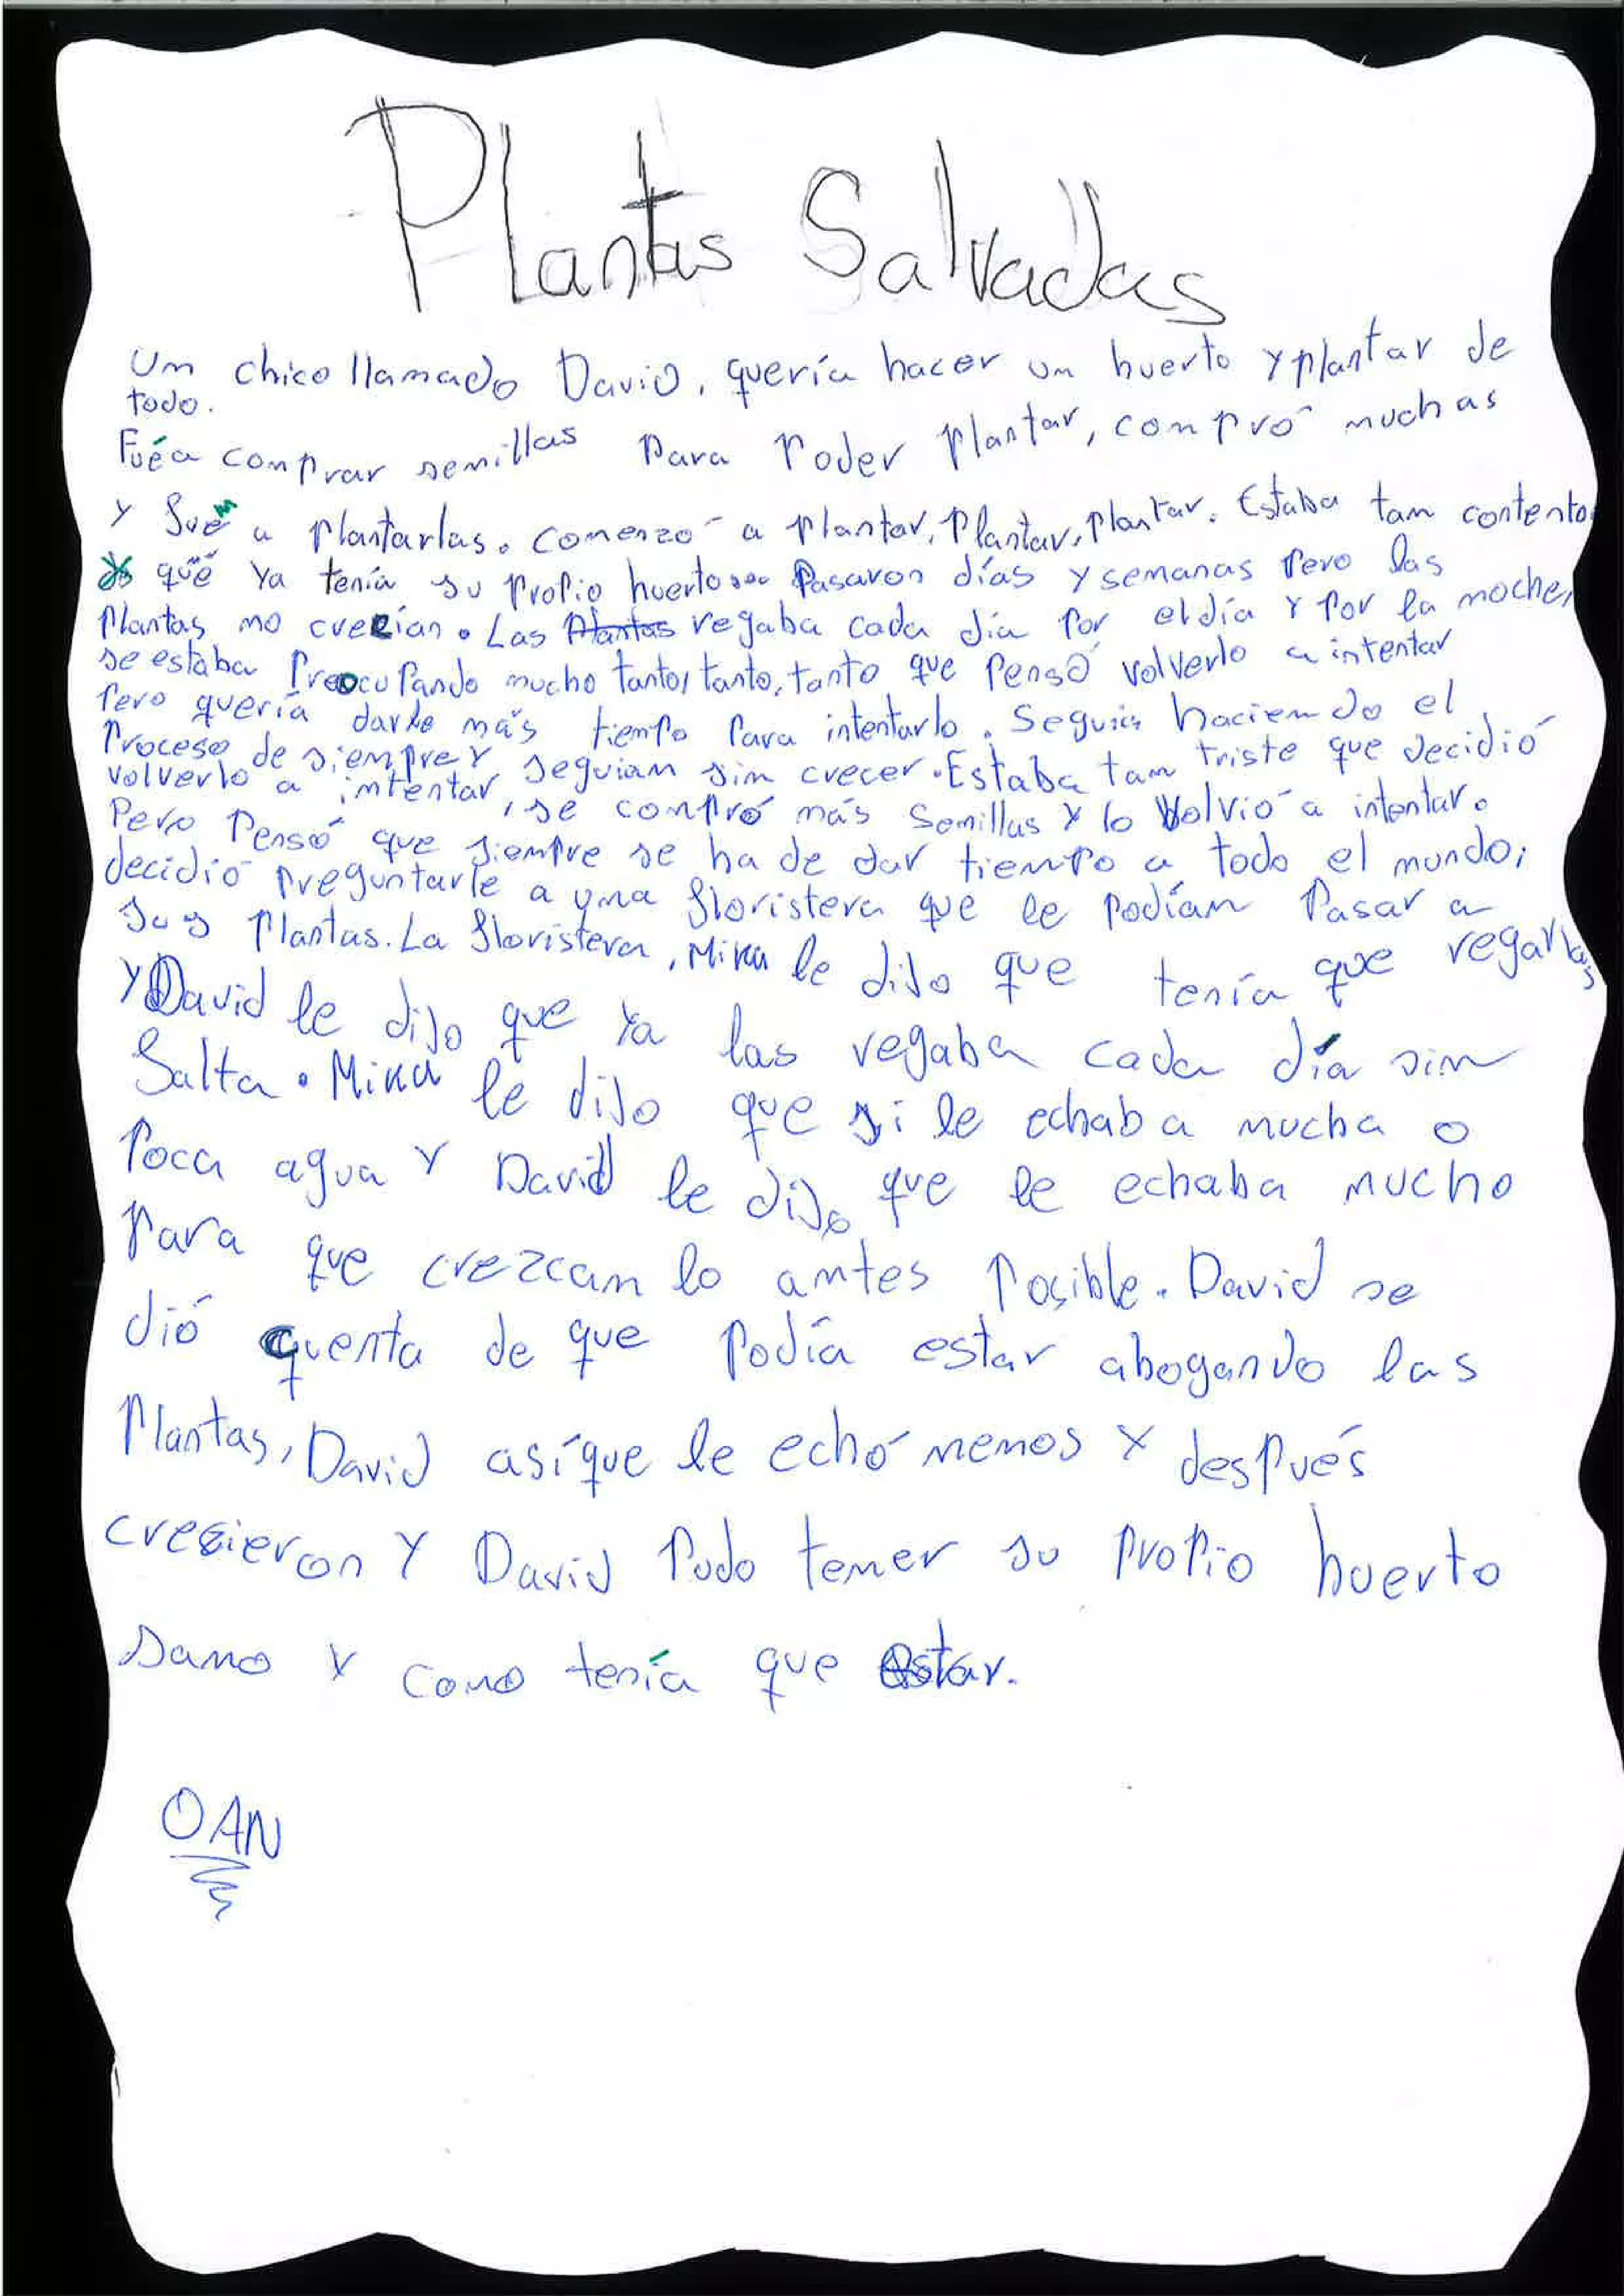 Plantas Salvadas
Un chico llamado David, quería hacer un huerto y plantar de
todo.
Fué a comprar semillas para poder plantar, compró muchas
y fué a plantarlas. comenzó a plantar, plantar, plantar. Estaba tan contento
que ya tenía su propio huerto... Pasaron días y semanas pero las
plantas no crecían. Las plantas regaba cada día por el día y por la noche,
se estaba preocupando mucho tanto, tanto, tanto que pensó volverlo a intentar
pero quería darle más tiempo para intentarlo. Seguía haciendo el
proceso de siempre y seguían sin crecer. Estaba tan triste que decidió
volverlo a intentar, se compró más semillas y lo volvió a intentar.
Pero pensó que siempre se ha de dar tiempo a todo el mundo,
decidió preguntarle a una floristera que le podían pasar a
sus plantas. La floristera, Mika le dijo que tenía que regarlas
y David le dijo que ya las regaba cada día sin
falta. Mika le dijo que si le echaba mucha o
poca agua y David le dijo que le echaba mucho
para que crezcan lo antes posible. David se
dió cuenta de que podía estar ahogando las
plantas, David así que le echó menos y después
crecieron y David pudo tener su propio huerto
sano y como tenía que estar.
OAN